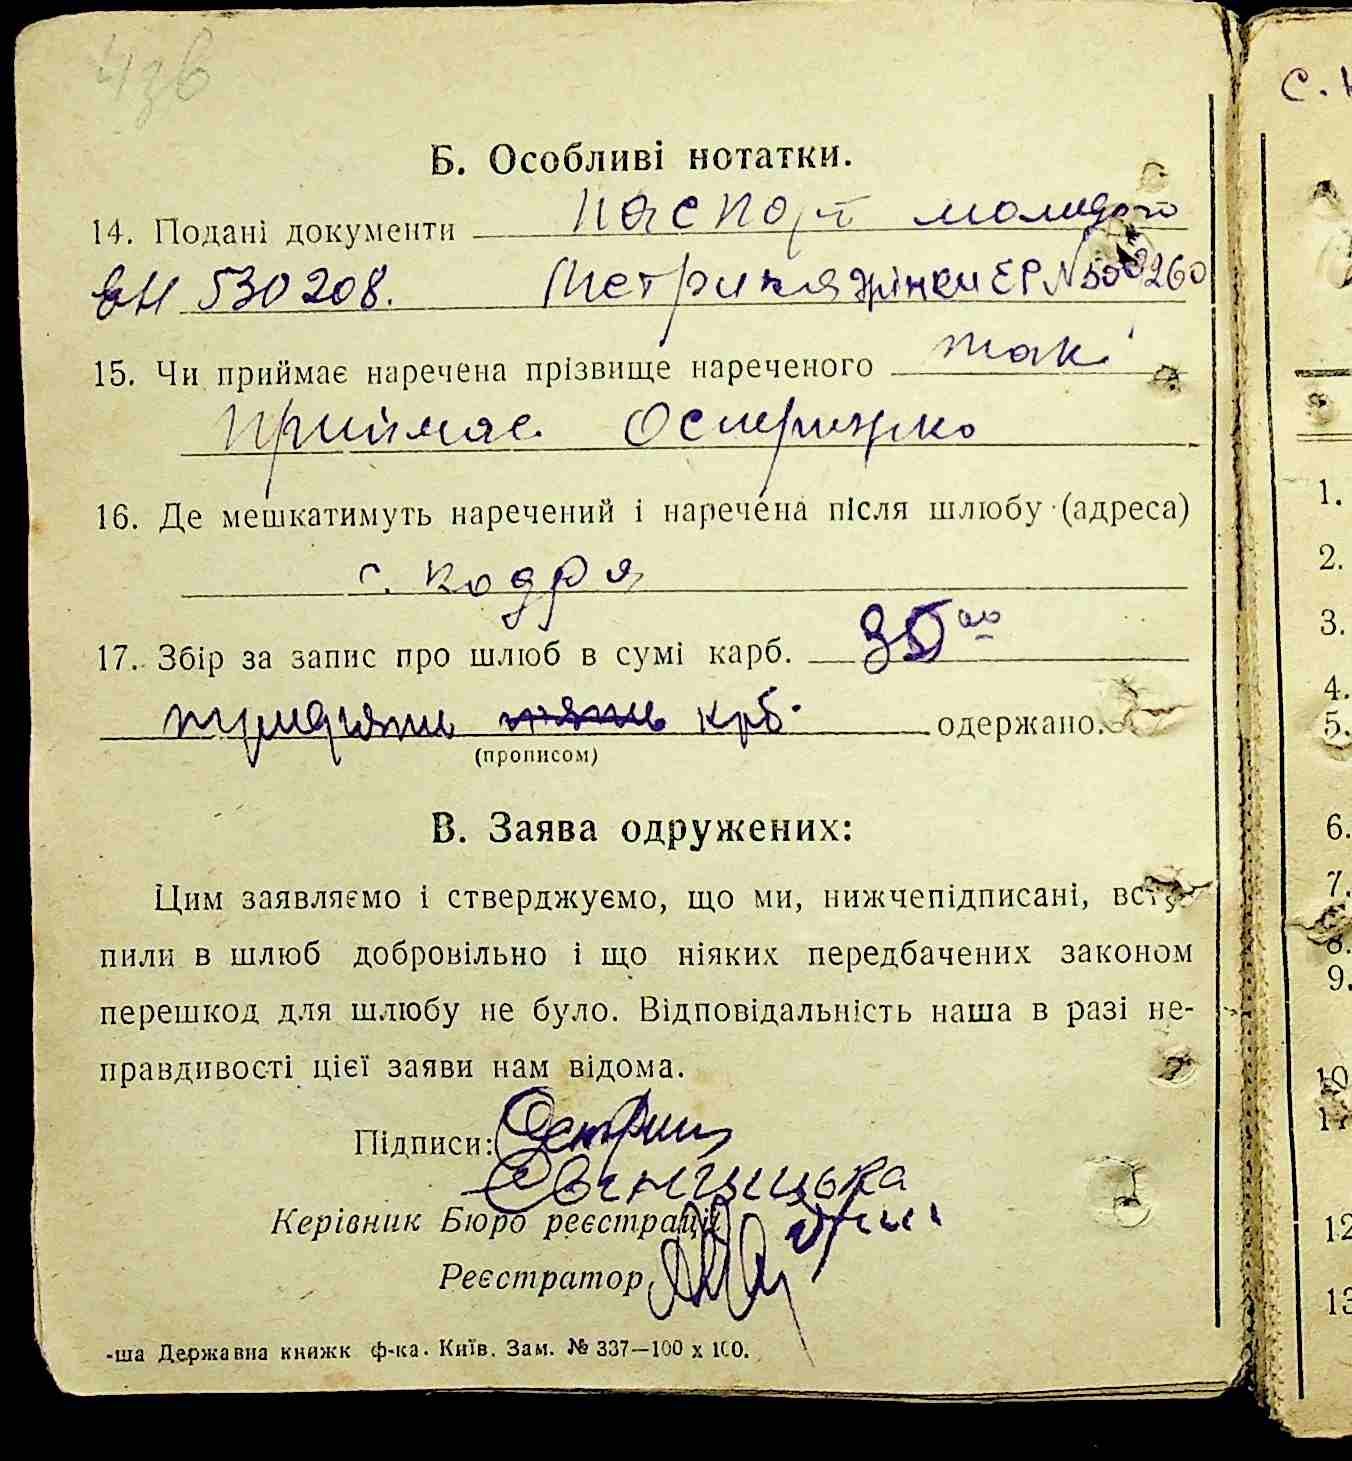 43в
Б. Особливі нотатки.
14. Подані документи паспорт молодого
530208. Метрика жінки ЕР № 500260
15. Чи приймає наречена прізвище нареченого так
приймає
16. Де мешкатимуть наречений і наречена після шлюбу (адреса)
с. Кодра
17. Збір за запис про шлюб в сумі карб. 30 00
тридцять крб. одержано.
(прописом)
В. Заява одружених:
Цим заявляємо і стверджуємо, що ми, нижчепідписані, всту-
пили в шлюб добровільно і що ніяких передбачених законом
перешкод для шлюбу не було. Відповідальність наша в разі не-
правдивості цієї заяви нам відома.
Підписи:
Керівник Бюро реєстрації
Реєстратор
-ша Державна книжк ф-ка. Київ. Зам. № 337—100 х 100.
с.
1.
2.
3.
4.
5.
6.
7.
8.
9.
10
11
12
13